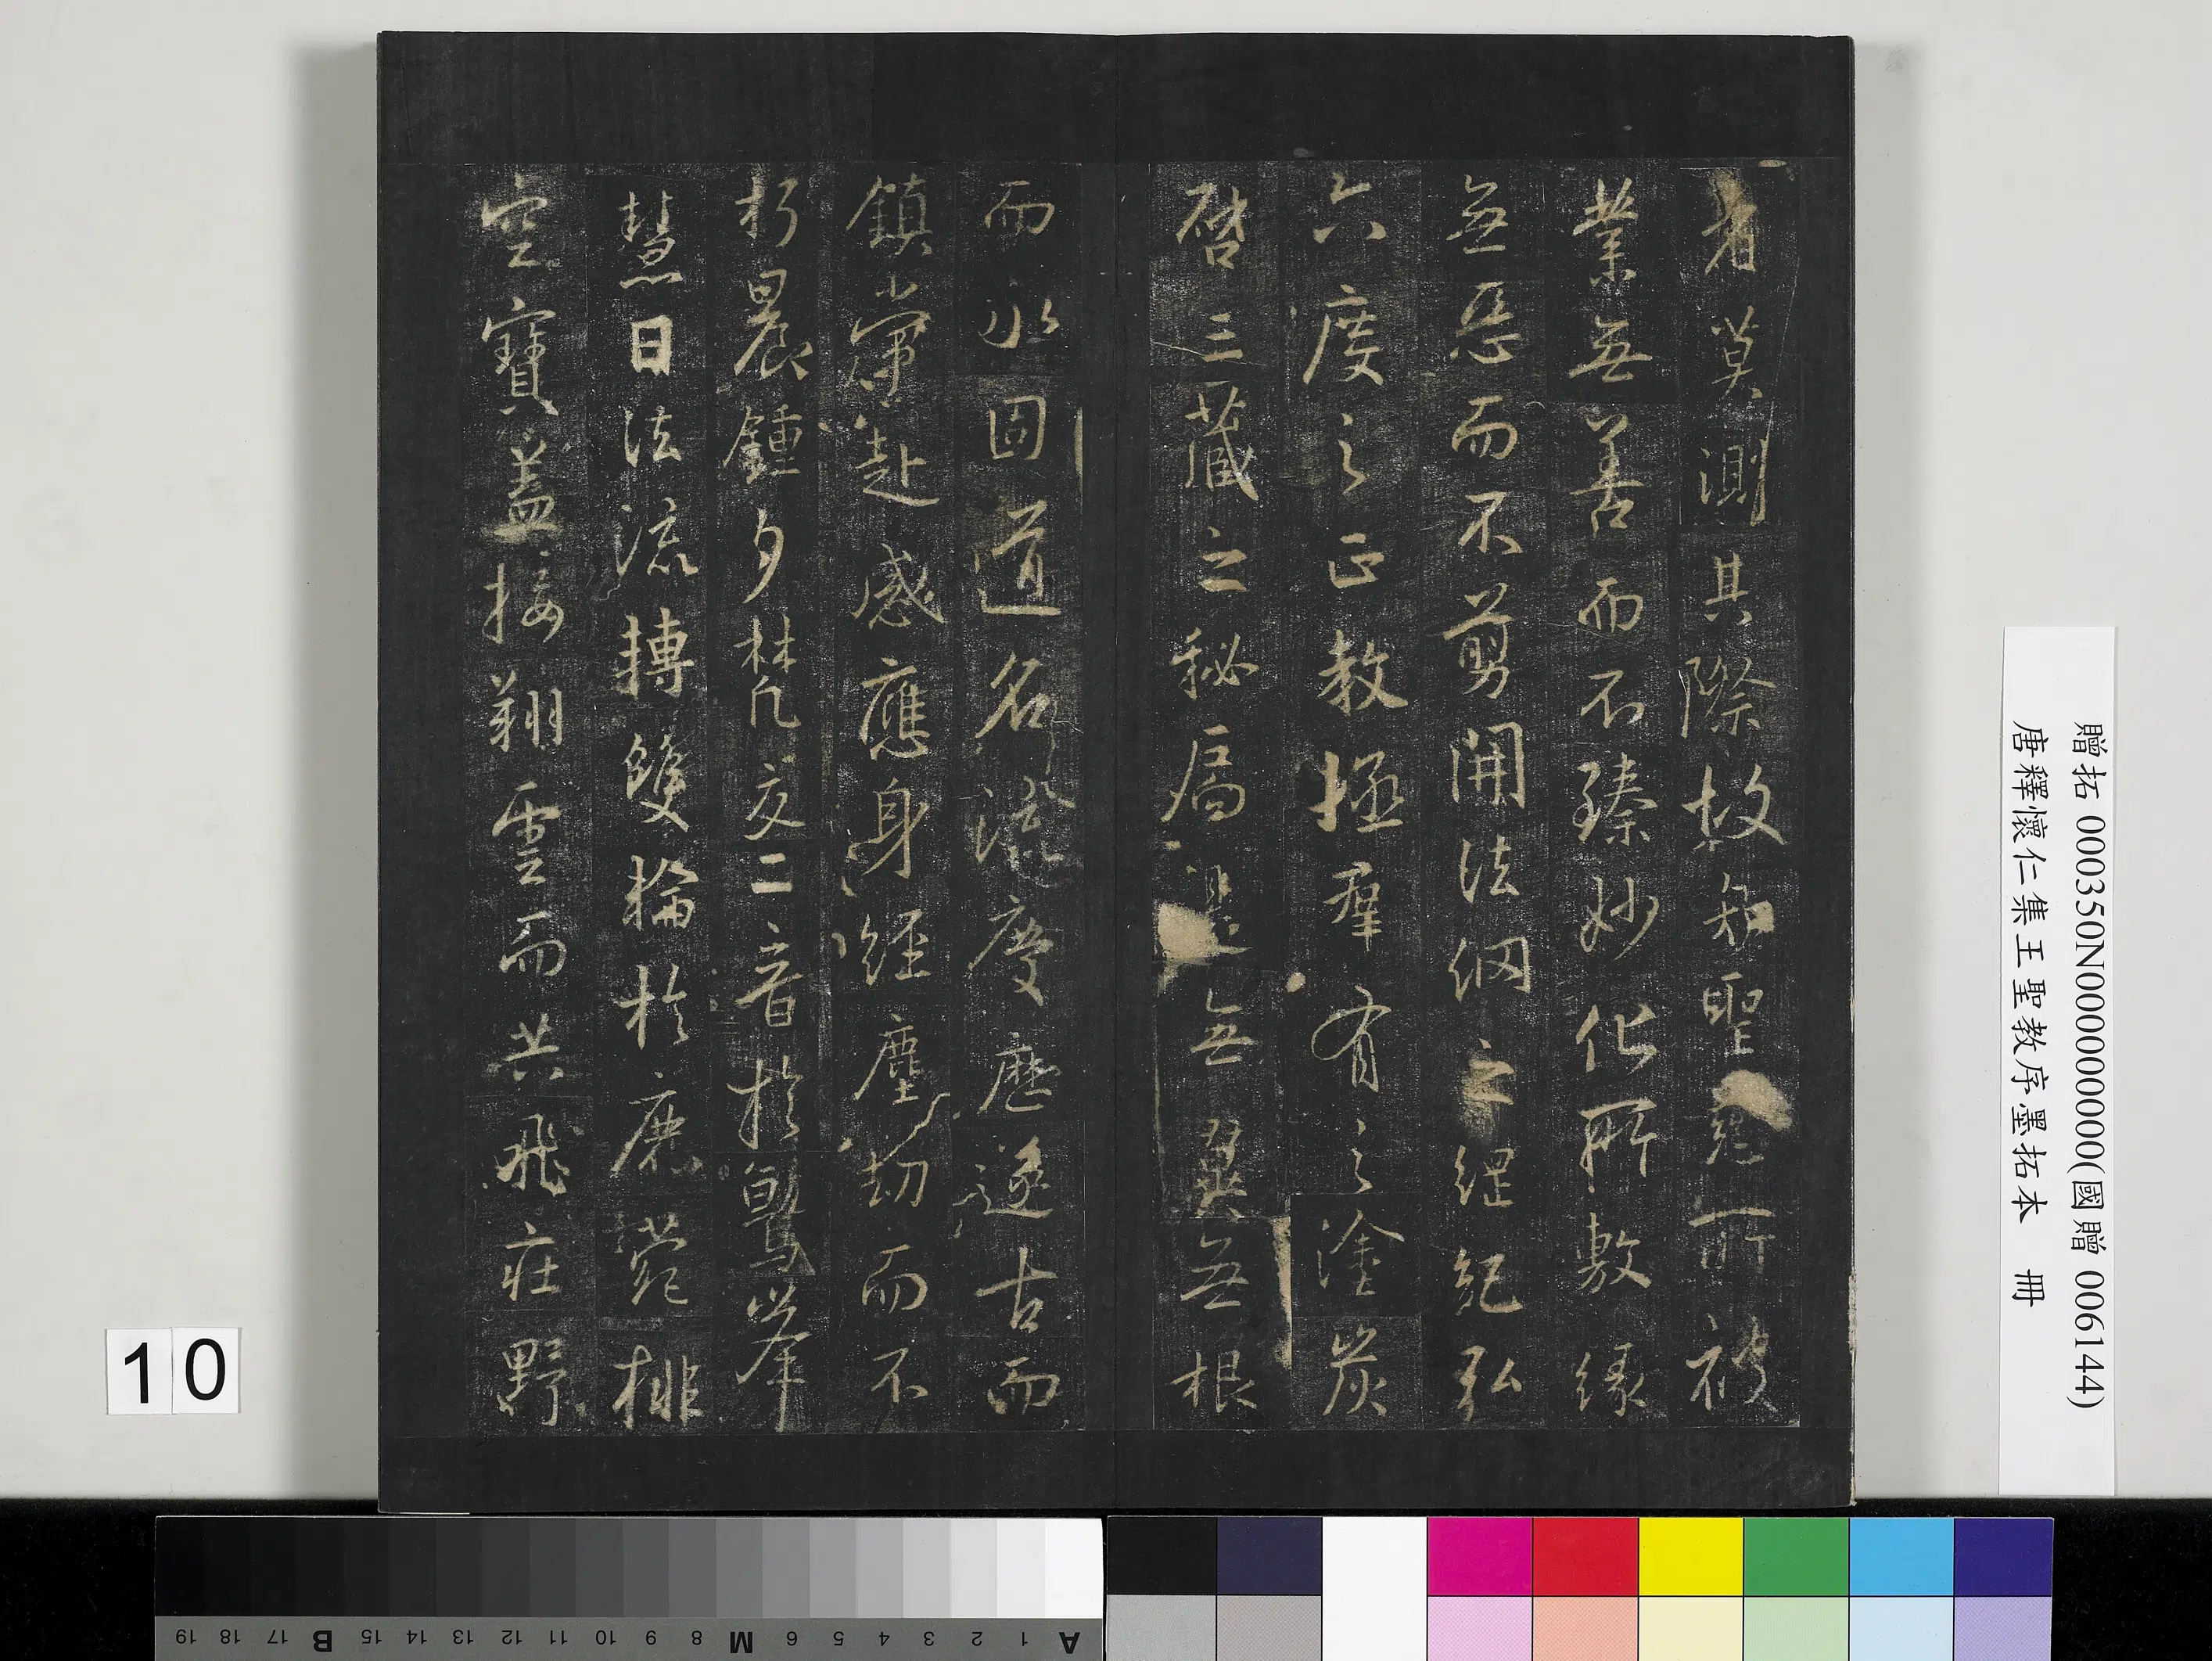 者莫測其際故知聖慈所被
業無善而不臻妙化所敷緣
無惡而不剪開法網之綱紀弘
六度之正教拯群有之塗炭
啓三藏之秘扃是無翼無根
而永固道名流慶歷遂古而
鎮常赴感應身經塵劫而不
朽晨鍾夕梵交二音於鷲峯
慧日法流轉雙輪於鹿菀排
空寶蓋接翔雲而共飛莊野
贈拓 000350N000000000(國贈 006144)
唐釋懷仁集王聖教序墨拓本 冊
10
A 1 2 3 4 5 6 M 8 9 10 11 12 13 14 15 B 17 18 19